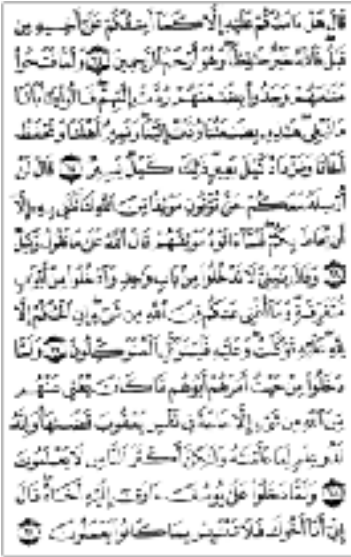 قَالَ هَلْ ءَامَنُكُمْ عَلَيْهِ إِلَّا كَمَا أَمِنتُكُمْ عَلَىٰ أَخِيهِ مِن
قَبْلُ فَاللَّهُ خَيْرٌ حَافِظًا وَهُوَ أَرْحَمُ الرَّاحِمِينَ ۝ وَلَمَّا فَتَحُوا
مَتَاعَهُمْ وَجَدُوا بِضَاعَتَهُمْ رُدَّتْ إِلَيْهِمْ قَالُوا يَا أَبَانَا
مَا نَبْغِي هَٰذِهِ بِضَاعَتُنَا رُدَّتْ إِلَيْنَا وَنَمِيرُ أَهْلَنَا وَنَحْفَظُ
أَخَانَا وَنَزْدَادُ كَيْلَ بَعِيرٍ ذَٰلِكَ كَيْلٌ يَسِيرٌ ۝ قَالَ لَنْ
أُرْسِلَهُ مَعَكُمْ حَتَّىٰ تُؤْتُونِ مَوْثِقًا مِّنَ اللَّهِ لَتَأْتُنَّنِي بِهِ إِلَّا
أَن يُحَاطَ بِكُمْ فَلَمَّا ءَاتَوْهُ مَوْثِقَهُمْ قَالَ اللَّهُ عَلَىٰ مَا نَقُولُ وَكِيلٌ
۝ وَقَالَ يَا بَنِيَّ لَا تَدْخُلُوا مِن بَابٍ وَاحِدٍ وَادْخُلُوا مِنْ أَبْوَابٍ
مُّتَفَرِّقَةٍ وَمَا أُغْنِي عَنكُم مِّنَ اللَّهِ مِن شَيْءٍ إِنِ الْحُكْمُ إِلَّا
لِلَّهِ عَلَيْهِ تَوَكَّلْتُ وَعَلَيْهِ فَلْيَتَوَكَّلِ الْمُتَوَكِّلُونَ ۝ وَلَمَّا
دَخَلُوا مِنْ حَيْثُ أَمَرَهُمْ أَبُوهُم مَّا كَانَ يُغْنِي عَنْهُم
مِّنَ اللَّهِ مِن شَيْءٍ إِلَّا حَاجَةً فِي نَفْسِ يَعْقُوبَ قَضَاهَا وَإِنَّهُ
لَذُو عِلْمٍ لِّمَا عَلَّمْنَاهُ وَلَٰكِنَّ أَكْثَرَ النَّاسِ لَا يَعْلَمُونَ
۝ وَلَمَّا دَخَلُوا عَلَىٰ يُوسُفَ ءَاوَىٰ إِلَيْهِ أَخَاهُ قَالَ
إِنِّي أَنَا أَخُوكَ فَلَا تَبْتَئِسْ بِمَا كَانُوا يَعْمَلُونَ ۝